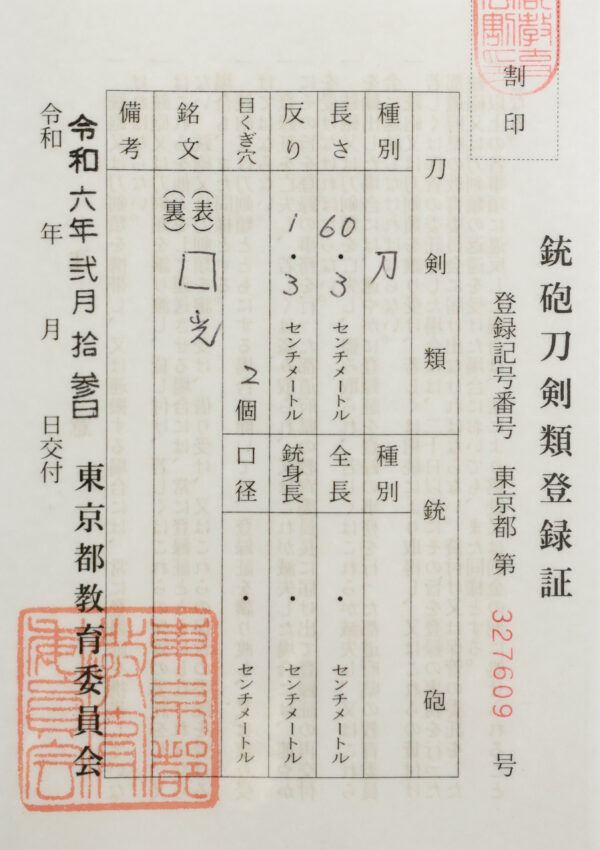 銃砲刀剣類登録証
登録記号番号 東京都 第 327609 号
割印
刀剣類
銃砲
種別 刀
種別
長さ 60・3 センチメートル
全長 ・ センチメートル
反り 1・3 センチメートル
銃身長 ・ センチメートル
目くぎ穴 2個
口径 ・ センチメートル
銘文 (表) 囗光
(裏)
備考
東京都教育委員会
令和六年弐月拾参日
令和 年 月 日交付
東京都教育委員会